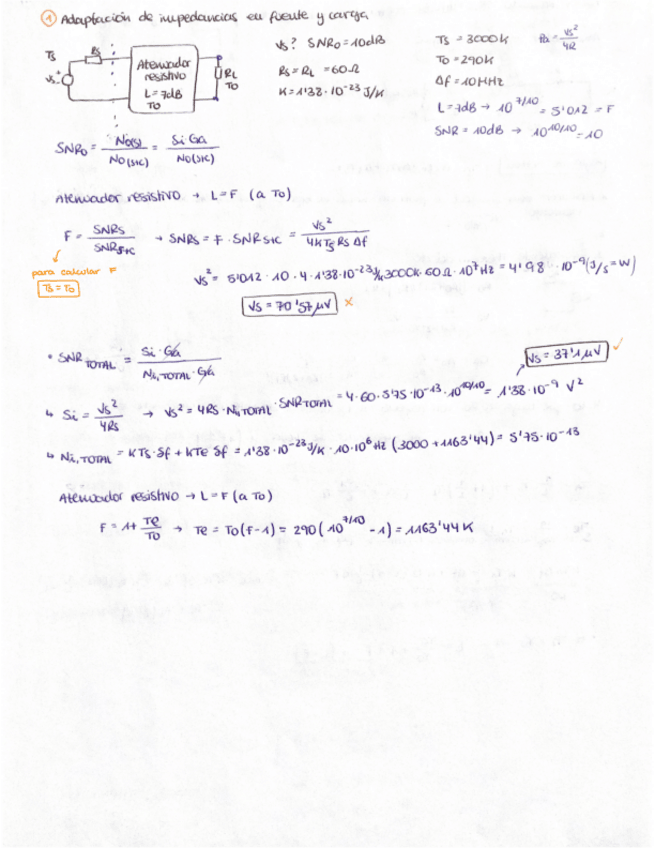 1 Adaptación de impedancias en fuente y carga
Ts Rs Vs
Atenuador resistivo L=7dB To
RL To
Vs? SNRo=10dB
Rs=RL=60Ω
K=1'38·10^-23 J/K
Ts=3000K
To=290K
Δf=10MHz
L=7dB → 10^7/10 = 5'012 = F
SNR=10dB → 10^10/10=10
Pa=Vs²/4R
SNRo = No(s)/No(s+c) = Si·Ga/No(s+c)
Atenuador resistivo → L=F (a To)
F = SNRs/SNRs+c → SNRs = F·SNRs+c = Vs²/4KTsRsΔf
para calcular F
Ts=To
Vs² = 5'012·10·4·1'38·10^-23 J/K 3000K·60Ω·10^7 Hz = 4'98·10^-9 (J/s=W)
Vs=70'57μV ×
• SNR TOTAL = Si·Ga/Ni,TOTAL·Ga
Vs=37'1μV ✓
↳ Si = Vs²/4Rs → Vs² = 4Rs·Ni,TOTAL·SNR TOTAL = 4·60·5'75·10^-13·10^10/10 = 1'38·10^-9 V²
↳ Ni,TOTAL = KTs·δf + KTe δf = 1'38·10^-23 J/K·10·10^6 Hz (3000+1163'44) = 5'75·10^-13
Atenuador resistivo → L=F (a To)
F = 1+ Te/To → Te = To(F-1) = 290(10^7/10 -1) = 1163'44K